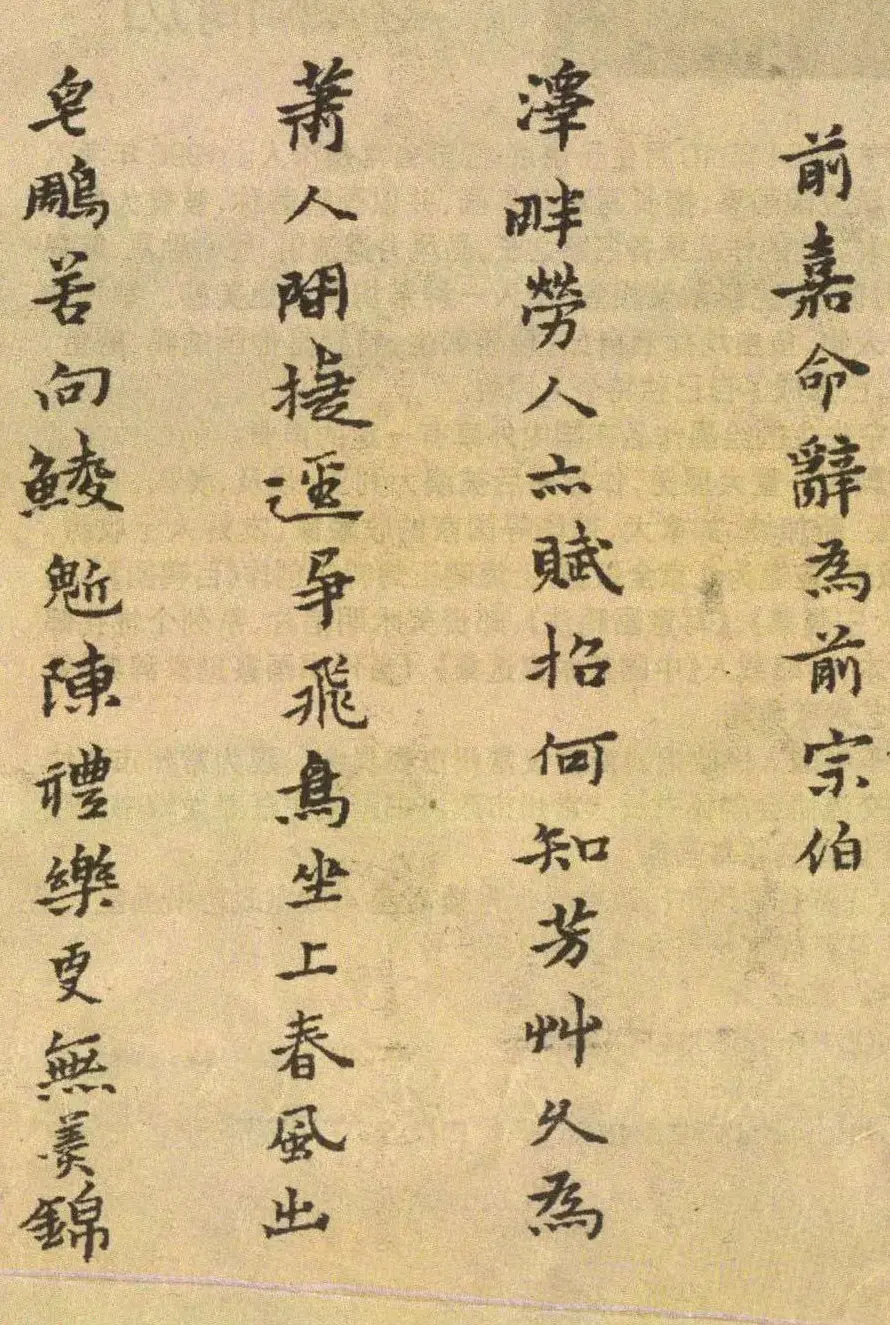 前嘉命辭為前宗伯
澤畔勞人亦賦招何知芳艸久為
蕭人間捷徑爭飛鳥坐上春風出
皂鵰苦向鯪魁陳禮樂更無羨錦